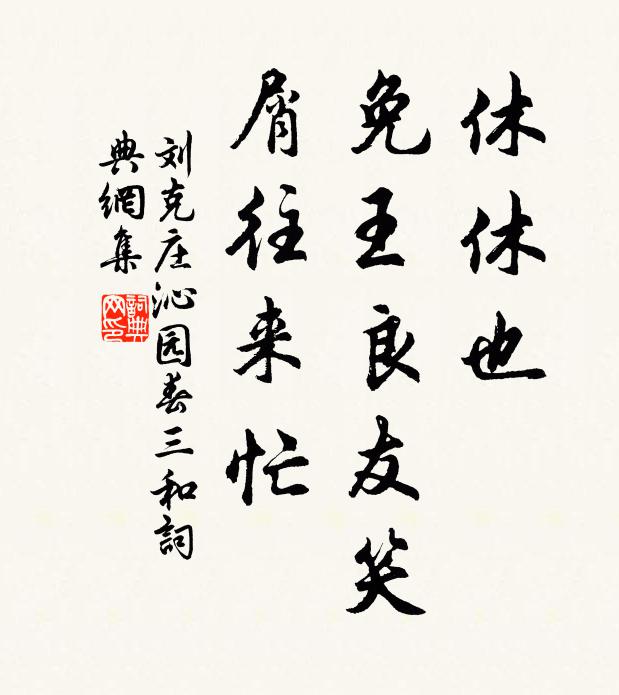 休休也
免王良友笑
屑往来忙
刘克庄沁园春三和詞
典網集
詞典网印